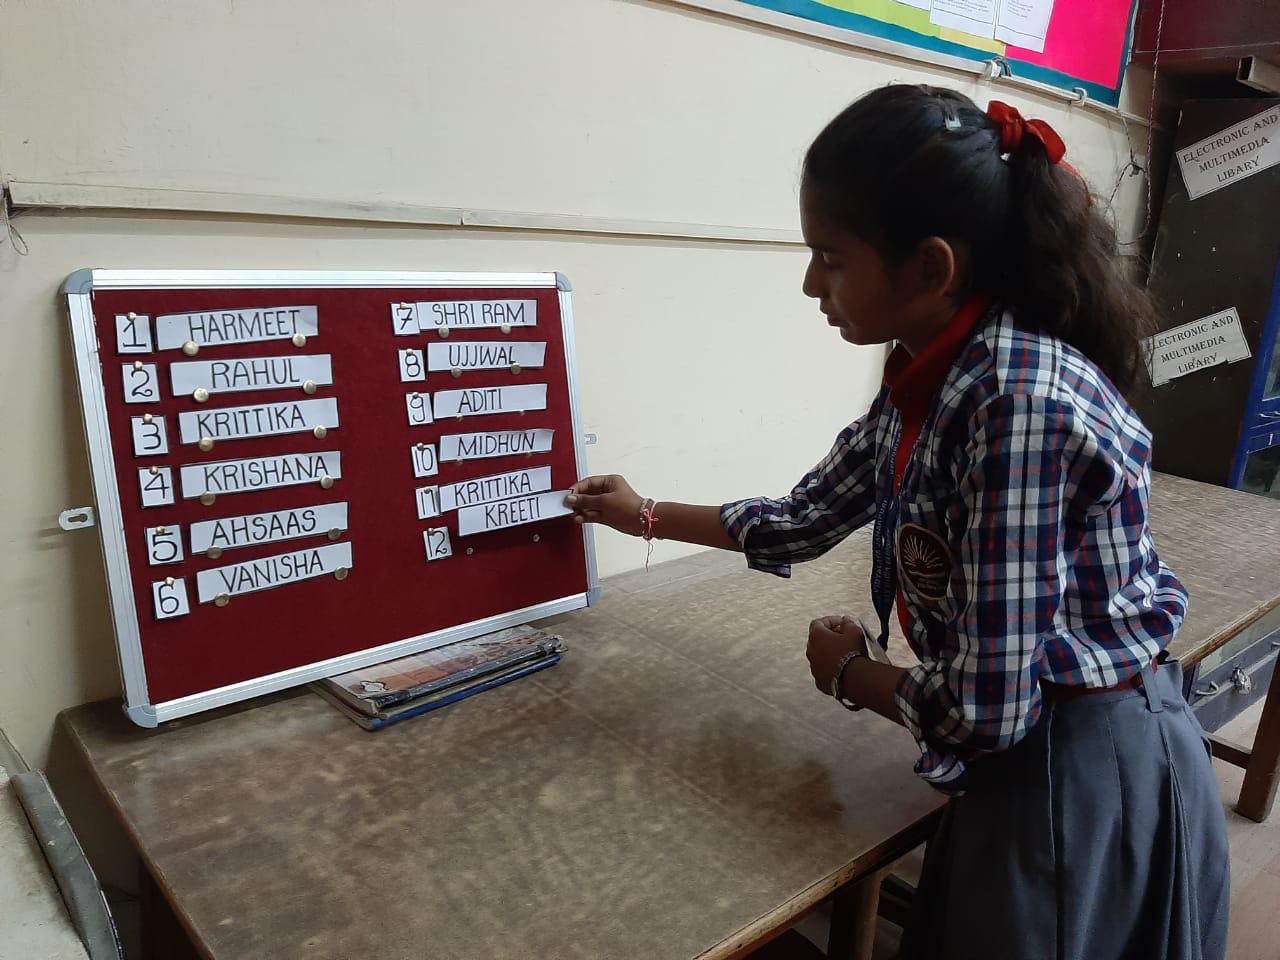 1 HARMEET
2 RAHUL
3 KRITTIKA
4 KRISHANA
5 AHSAAS
6 VANISHA
7 SHRI RAM
8 UJJWAL
9 ADITI
10 MIDHUN
11 KRITTIKA
KREETI
12
ELECTRONIC AND
MULTIMEDIA
LIBARY
ELECTRONIC AND
MULTIMEDIA
LIBRARY